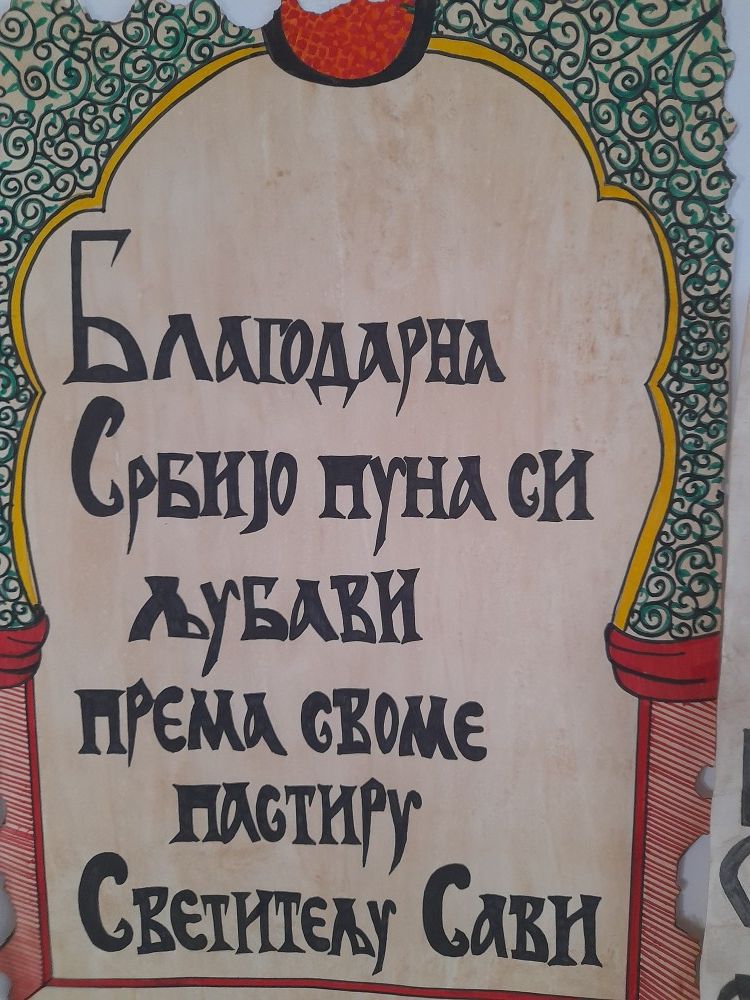 Благодарна
Србијо пуна си
љубави
према своме
пастиру
Светитељу Сави